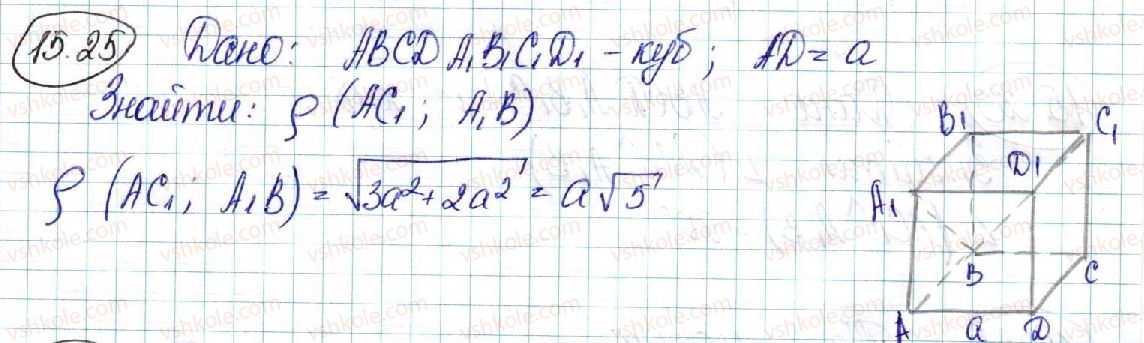 15.25 Дано: ABCDA₁B₁C₁D₁ - куб; AD = a
Знайти: ρ (AC₁; A₁B)
ρ (AC₁; A₁B) = √3a²+2a2 = a√5
B₁ C₁
D₁
A₁
B C
A a D